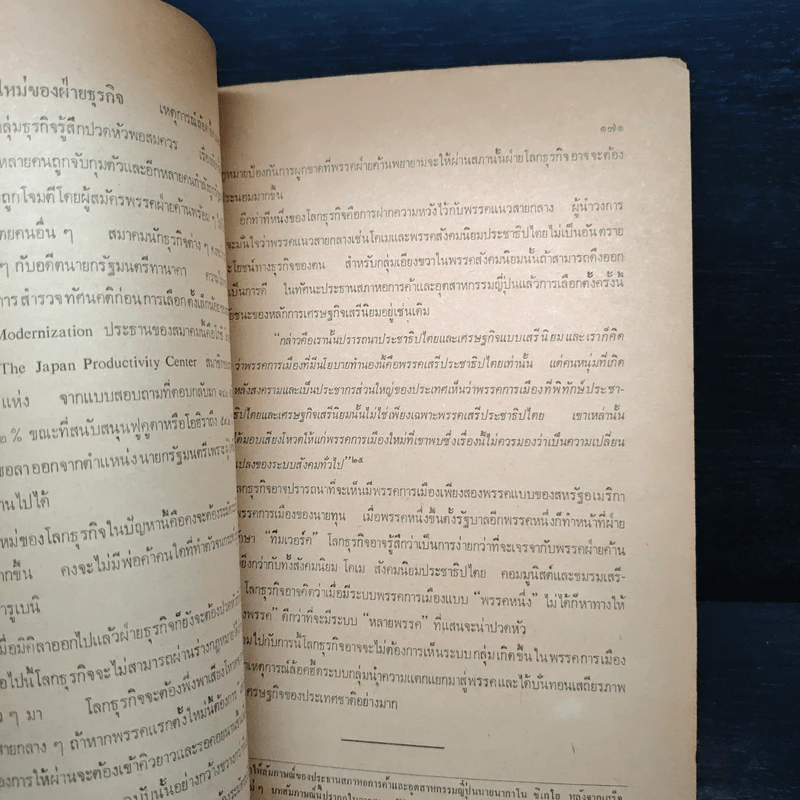 ใหม่ของฝ่ายธุรกิจ เหตุการณ์ล้อคฮีด
กลุ่มธุรกิจรู้สึกปวดหัวพอสมควร
หลายคนถูกจับกุมตัวและอีกหลายคน
ถูกโจมตีโดยผู้สมัครพรรคฝ่ายค้านพร้อม ๆ
คนอื่น ๆ สมาคมนักธุรกิจต่าง ๆ
ๆ กับอดีตนายกรัฐมนตรีทานาคา
การสำรวจทัศนคติก่อนการเลือกตั้งเล็กน้อย
Modernization ประธานของสมาคมนี้คือ
The Japan Productivity Center
แห่ง จากแบบสอบถามที่ตอบกลับมา
% ขณะที่สนับสนุนฟูคูดาหรือโอฮิราถึง
ลาออกจากตำแหน่งนายกรัฐมนตรีเพราะ
ไปได้
ใหม่ของโลกธุรกิจในปัญหานี้คือคงจะต้อง
ขึ้น คงจะไม่มีพ่อค้าคนใดที่ทำตัว
มารูเบนิ
เมื่อมิคิลาออกไปแล้วฝ่ายธุรกิจก็ยังจะต้องปวด
ไปนี้โลกธุรกิจจะไม่สามารถผ่านร่างกฎหมาย
ๆ มา โลกธุรกิจจะต้องพึ่งพาเสียง
สายกลาง ๆ ถ้าหากพรรคแรกตั้งใหม่นี้ต้องการ
ต้องการให้ผ่านจะต้องเข้าคิวยาวและรอคอย
ฉบับนั้นอย่างกว้างขวาง
๑๗๑
กฎหมายป้องกันการผูกขาดที่พรรคฝ่ายค้านพยายามจะให้ผ่านสภานั้นฝ่ายโลกธุรกิจอาจจะต้อง
ประนอมมากขึ้น
อีกท่าทีหนึ่งของโลกธุรกิจคือการฝากความหวังไว้กับพรรคแนวสายกลาง ผู้นำวงการ
จะมั่นใจว่าพรรคแนวสายกลางเช่นโคเมและพรรคสังคมนิยมประชาธิปไตย ไม่เป็นอันตราย
ประโยชน์ทางธุรกิจของตน สำหรับกลุ่มเอียงขวาในพรรคสังคมนิยมนั้นถ้าสามารถดึงออก
เป็นการดี ในทัศนะประธานสภาหอการค้าและอุตสาหกรรมญี่ปุ่นแล้วการเลือกตั้งครั้งนี้
ชัยชนะของหลักการเศรษฐกิจเสรีนิยมอยู่เช่นเดิม
"กล่าวคือเรานั้นปรารถนาประชาธิปไตยและเศรษฐกิจแบบเสรีนิยม และเราก็คิด
ว่าพรรคการเมืองที่มีนโยบายทำนองนี้คือพรรคเสรีประชาธิปไตยเท่านั้น แต่คนหนุ่มที่เกิด
หลังสงครามและเป็นประชากรส่วนใหญ่ของประเทศเห็นว่าพรรคการเมืองที่พิทักษ์ประชา-
ธิปไตยและเศรษฐกิจเสรีนิยมนั้นไม่ใช่เพียงเฉพาะพรรคเสรีประชาธิปไตย เขาเหล่านั้น
ได้มอบเสียงโหวตให้แก่พรรคการเมืองใหม่ที่เขาพบซึ่งเรื่องนี้ไม่ควรมองว่าเป็นความเปลี่ยน
แปลงของระบบสังคมทั่วไป"๒๕
โลกธุรกิจอาจปรารถนาที่จะเห็นมีพรรคการเมืองเพียงสองพรรคแบบของสหรัฐอเมริกา
พรรคการเมืองของนายทุน เมื่อพรรคหนึ่งขึ้นตั้งรัฐบาลอีกพรรคหนึ่งก็ทำหน้าที่ฝ่าย
"ทีมเวอร์ค" โลกธุรกิจอาจรู้สึกว่าเป็นการง่ายกว่าที่จะเจรจากับพรรคฝ่ายค้าน
เพียงกว่ากับทั้งสังคมนิยม โคเม สังคมนิยมประชาธิปไตย คอมมูนิสต์และชมรมเสรี-
โลกธุรกิจอาจคิดว่าเมื่อมีระบบพรรคการเมืองแบบ "พรรคหนึ่ง" ไม่ได้ก็หาทางให้
สองพรรค" ดีกว่าที่จะมีระบบ "หลายพรรค" ที่แสนจะน่าปวดหัว
ตามไปกับการนี้โลกธุรกิจอาจจะไม่ต้องการเห็นระบบกลุ่มเกิดขึ้นในพรรคการเมือง
เหตุการณ์ล้อคฮีดระบบกลุ่มนำความแตกแยกมาสู่พรรคและได้บั่นทอนเสถียรภาพ
เศรษฐกิจของประเทศชาติอย่างมาก
ให้สัมภาษณ์ของประธานสภาหอการค้าและอุตสาหกรรมญี่ปุ่นนายนากาโน ชิเกโอ หลังจากเสร็จ
ๆ บทสัมภาษณ์นี้ปรากฏใน